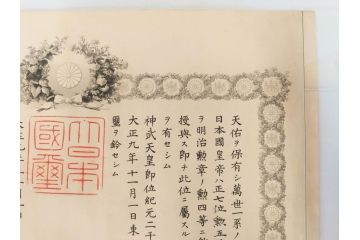 天佑ヲ保有シ萬世一系ノ
日本國皇帝ハ正七位勲五
ヲ明治勲章ノ勲四等ニ
授與ス即チ此位ニ屬スル
ヲ有セシム
神武天皇即位紀元二千
大正九年十一月一日東
璽ヲ鈐セシム
大日本
國璽